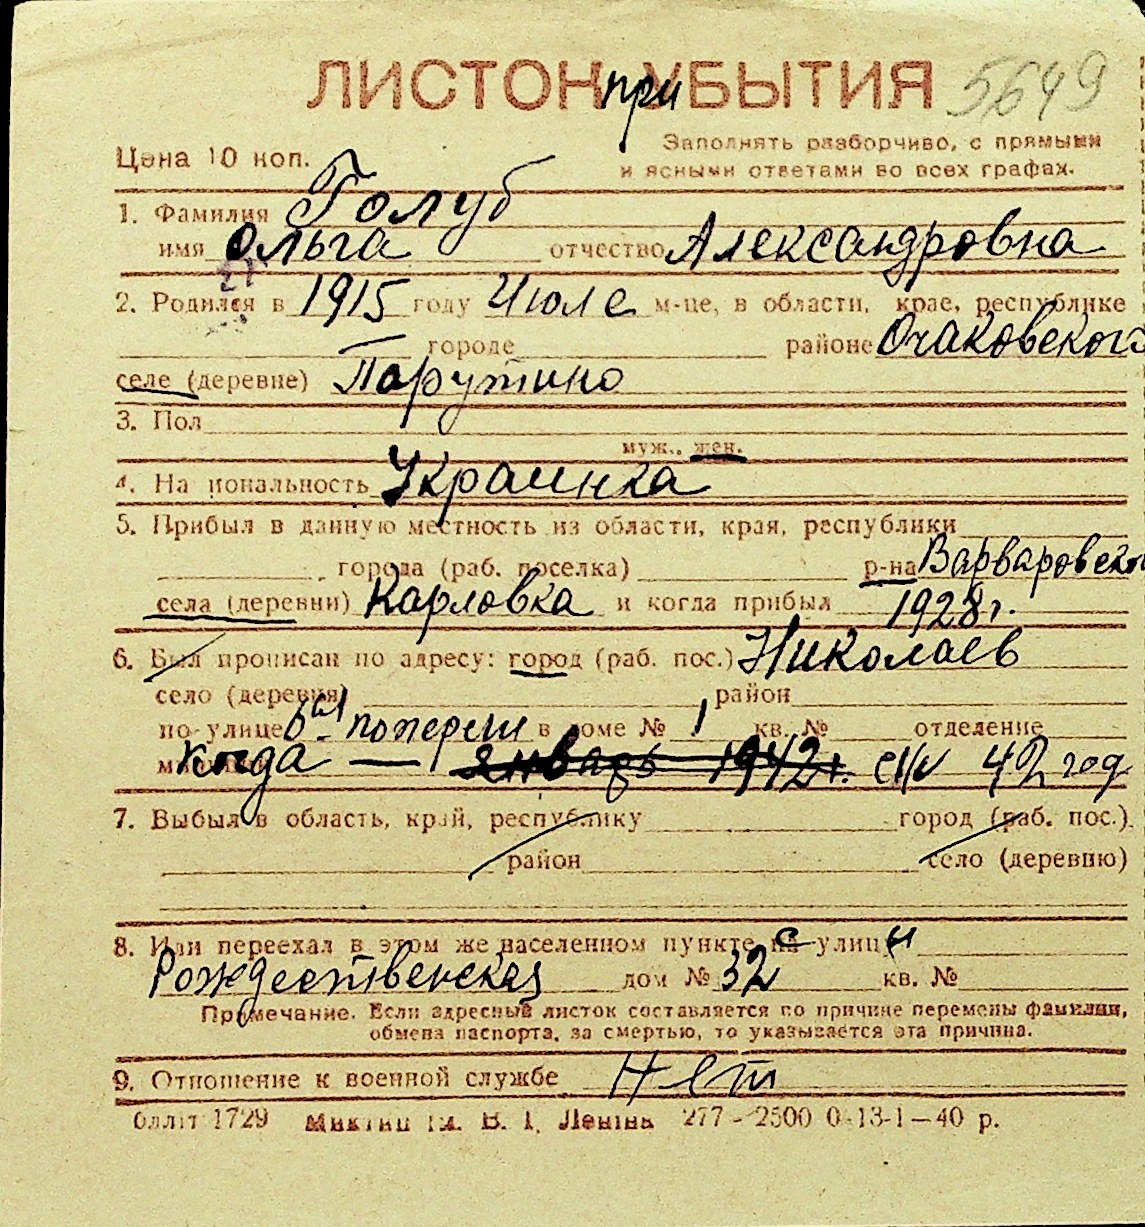 ЛИСТОК при УБЫТИЯ 5649
Цена 10 коп.
Заполнять разборчиво, с прямыми
и ясными ответами во всех графах.
1. Фамилия Голуб
имя Ольга отчество Александровна
27
2. Родился в 1915 году Июле м-це, в области, крае, республике
городе районе Очаковского
селе (деревне) Парутино
3. Пол
муж., жен.
4. Национальность Украинка
5. Прибыл в данную местность из области, края, республики
города (раб. поселка) р-на Варваровског
села (деревни) Карловка и когда прибыл 1928 г.
6. Был прописан по адресу: город (раб. пос.) Николаев
село (деревня) район
по улице 6ая попереш в доме № 1 кв. № отделение
когда — январь 1942 г. 42 год
7. Выбыл в область, край, республику город (раб. пос.)
район село (деревню)
8. Или переехал в этом же населенном пункте с улицы
Рождественская дом № 32 кв. №
Примечание. Если адресный листок составляется по причине перемены фамилии,
обмена паспорта, за смертью, то указывается эта причина.
9. Отношение к военной службе Нет
блліт 1729 В. І. Леніна 277-2500 0-13-1-40 р.